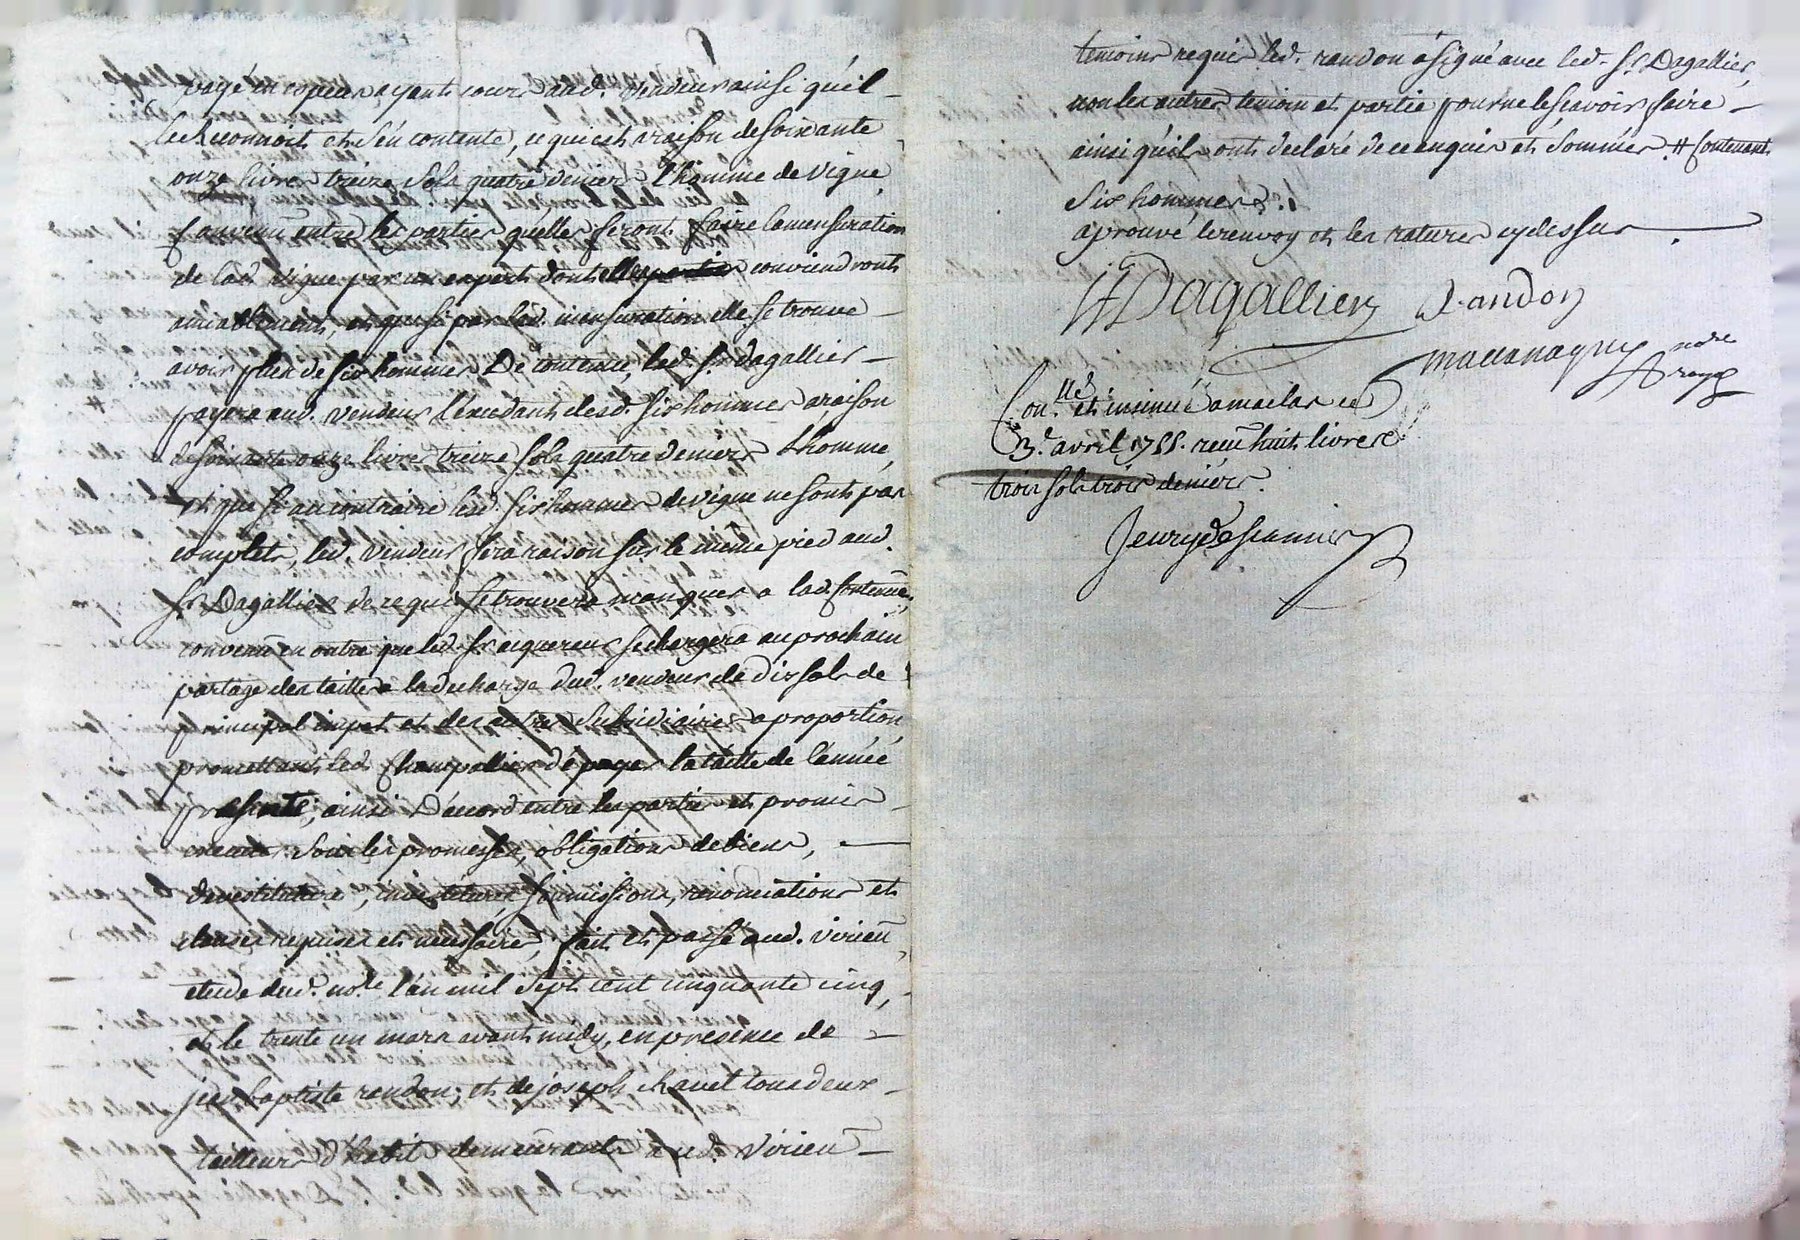 payé en espèces ayants cours aud. vendeur ainsi qu'il
le Reconnoit et s'en contente, ce qui est a raison de soixante
onze livres treize sols quatre deniers l'homme de vigne,
Convenu entre les parties qu'elles feront faire la mensuration
de lad. vigne par un expert dont elles conviendront
amiablement, et que si par lad. mensuration elle se trouve
avoir plus de six hommes De contenue, led. Sr. dagallier
payera aud. vendeur l'excedant desd. six hommes a raison
de soixante onze livres treize sols quatre deniers l'homme,
et que si au contraire lesd. six hommes de vigne ne sont pas
complets, led. vendeur fera raison sur le même pied aud.
Sr. Dagallier de ce qui se trouvera manquer a lad. Contenue,
convenu en outre que led. Sr acquereur se chargera au prochain
partage des tailles a la decharge dud. vendeur de dix sols de
principal impot et des autres subsidiaires a proportion,
promettant led. Champallier de payer la taille de l'année
presente; ainsi D'accord entre les parties et promis
sous les promesses, obligations de biens,
devestitures, investitures, soumissions, renonciations et
clauses requises et necessaires, fait et passé aud. virieu,
etude dud. no.re l'an mil sept cent cinquante cinq,
et le trente un mars avant midy, en presence de
jean baptiste randon, et de joseph chavel tous deux
tailleurs d'habits demeurants aud. Virieu
temoins requis led. randon a signé avec led. Sr Dagallier,
non les autres temoin et partie pour ne le sçavoir faire
ainsi qu'ils ont declaré de ce enquis et sommés. # Contenant
six hommes.
aprouvé le renvoy et les ratures cy dessus
Dagallier Randon
no.re royal
Con.llé et insinué a ce
3.e avril 1755. reçu huit livres
trois sols trois deniers.